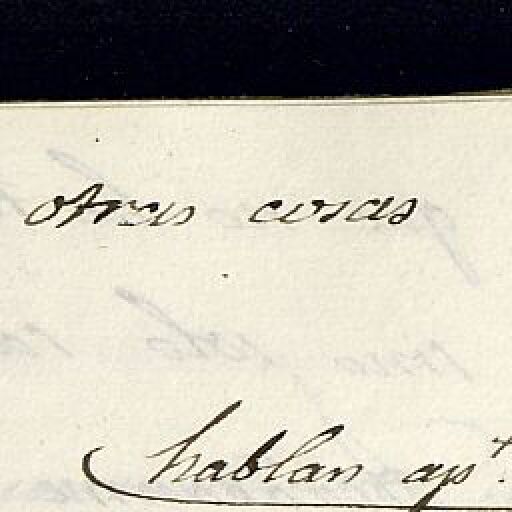 otras cosas
(hablan apt.